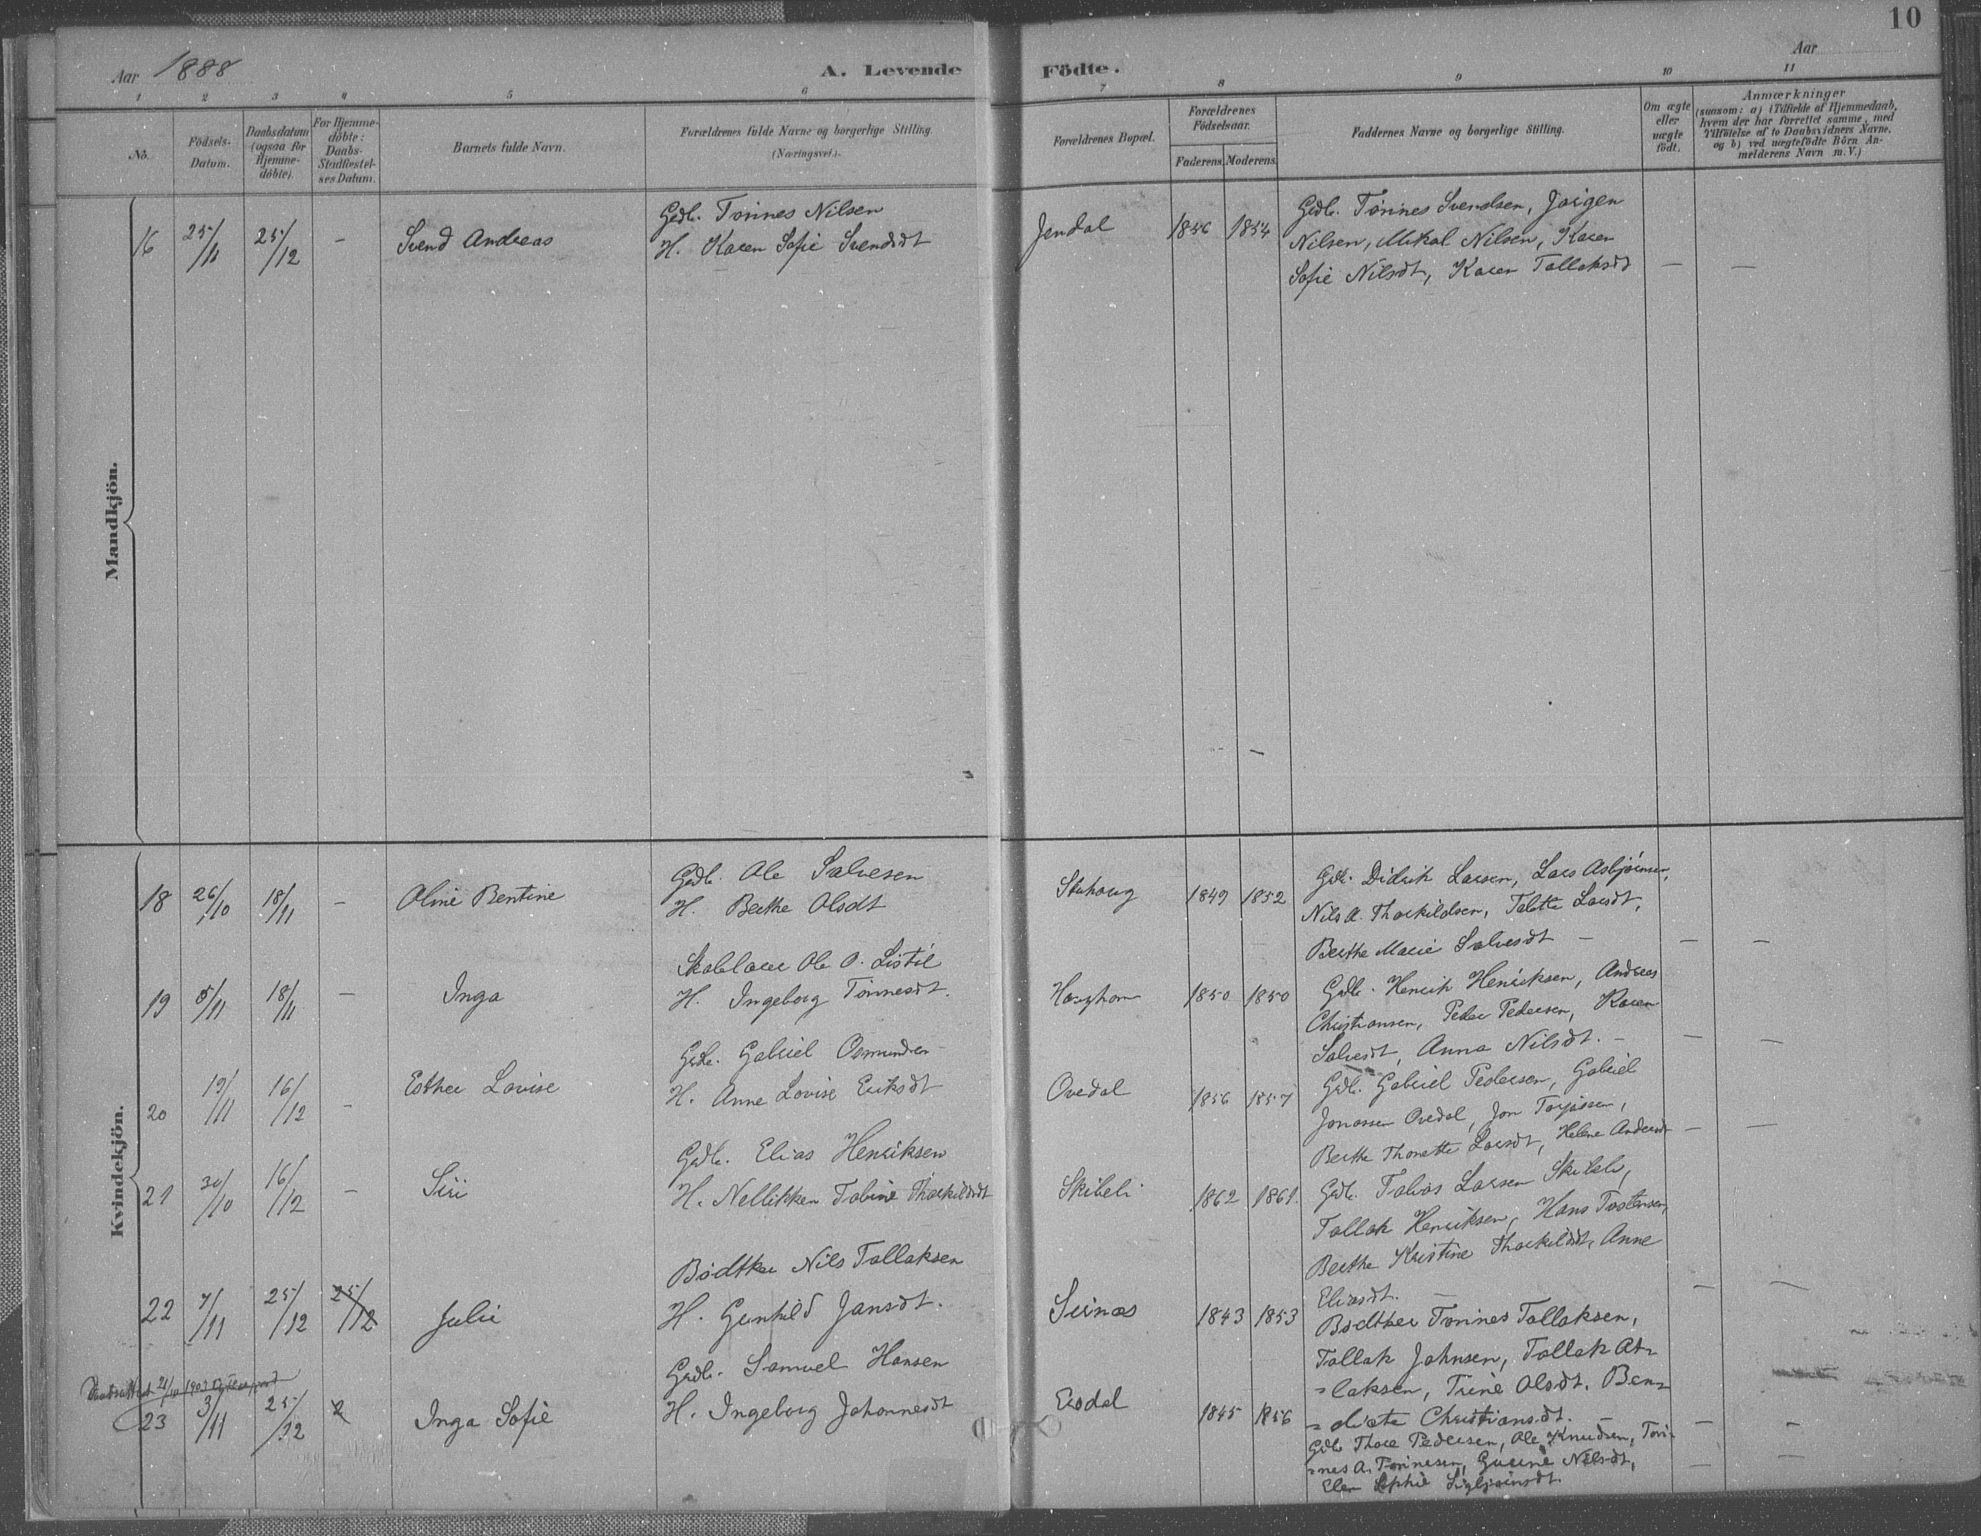 10
Aar 1888
A. Levende Födte.
Aar
1 2 3 4 5 6 7 8 9 10 11
No.
Födsels-Datum.
Daabsdatum (ogsaa for Hjemme-döbte).
For Hjemme-döbte: Daabs-Stadfæstel-ses Datum.
Barnets fulde Navn.
Forældrenes fulde Navne og borgerlige Stilling.
(Næringsvei).
Forældrenes Bopæl.
Forældrenes Födselsaar.
Faderens. Moderens.
Faddernes Navne og borgerlige Stilling.
Om ægte eller uægte födt.
Anmærkninger
(saasom: a) i Tilfælde af Hjemmedaab,
hvem der har forrettet samme, med
Tilföielse af to Daabsvidners Navne,
og b) ved uægtefödte Börn An-
melderens Navn m. V.)
Mandkjön.
16 25/11 25/12 - Svend Andreas
Gdb. Tønnes Nilsen
H. Karen Sofie Svendsdt
Jendal 1856 1854
Gdb. Tønnes Svendsen, Jørgen
Nilsen, Mikal Nilsen, Karen
Sofie Nilsdt, Karen Tallaksdt — —
Kvindekjön.
18 26/10 18/11 - Oline Bentine
Gdb. Ole Salvesen
H. Berthe Olsdt
Stuhaug 1849 1852
Gdb. Didrik Larsen, Lars Asbjørnsen,
Nils A. Thorkildsen, Talette Larsdt,
Berthe Marie Salvesdt — — —
19 5/11 18/11 - Inga
Ole O. Listøl
H. Ingeborg Tønnesdt.
Haughom 1850 1850
Gdb. Henrik Henriksen, Andreas
Christiansen, Peder Pedersen, Karen
Salvesdt, Anna Nilsdt. — — —
20 19/11 16/12 - Esther Lovise
Gdb. Gabriel Osmundsen
H. Anne Lovise Eriksdt
Ovedal 1856 1857
Gdb. Gabriel Pedersen, Gabriel
Jonassen Ovedal, Jon Torjussen,
Berthe Thonette Larsdt, Helene Andersdt — —
21 30/10 16/12 - Siri
Gdb. Elias Henriksen
H. Nellikken Tobine Thorkildsdt
Skibeli 1862 1861.
Gdb. Tobias Larsen Skibeli,
Tallak Henriksen, Hans Tostensen,
Berthe Kristine Thorkildsdt, Anne
Eliasdt. — — —
22 7/11 25/12 25/12 Julie
Bødtker Nils Tallaksen
H. Gunhild Jansdt.
Seinæs 1843 1853
Bødtker Tønnes Tallaksen,
Tallak Johnsen, Tallak At-
=laksen, Trine Olsdt. Ben=
=dicte Christiansdt. — — —
21/10 1903
23 3/11 25/12 2 Inga Sofie
Gdb. Samuel Hansen
H. Ingeborg Johannesdt
Eisdal 1845 1856
Gdb. Thore Pedersen, Ole Knudsen, Tøn-
=nes A. Tønnesen, Gurine Nilsdt,
Elen Sophie Sigbjørnsdt. — —